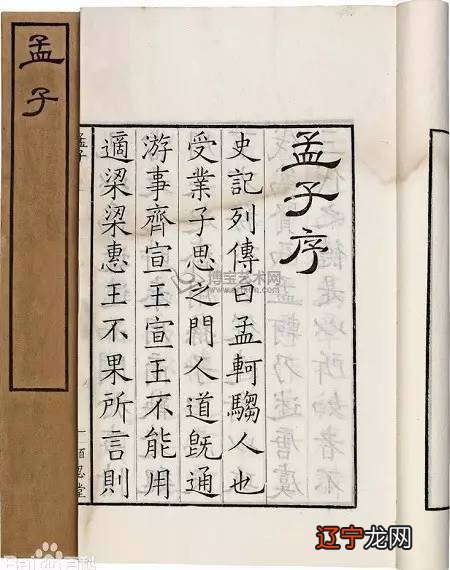 孟子
孟子序
史記列傳曰孟軻騶人也
受業子思之門人道既通
游事齊宣王宣王不能用
適梁梁惠王不果所言則
孟子
博宝艺术网
Bai百科
辽宁龙网